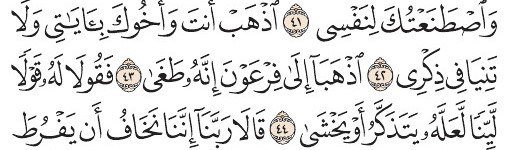 وَٱصْطَنَعْتُكَ لِنَفْسِى ٤١ ٱذْهَبْ أَنتَ وَأَخُوكَ بِـَٔايَـٰتِى وَلَا
تَنِيَا فِى ذِكْرِى ٤٢ ٱذْهَبَآ إِلَىٰ فِرْعَوْنَ إِنَّهُۥ طَغَىٰ ٤٣ فَقُولَا لَهُۥ قَوْلًا
لَّيِّنًا لَّعَلَّهُۥ يَتَذَكَّرُ أَوْ يَخْشَىٰ ٤٤ قَالَا رَبَّنَآ إِنَّنَا نَخَافُ أَن يَفْرُطَ